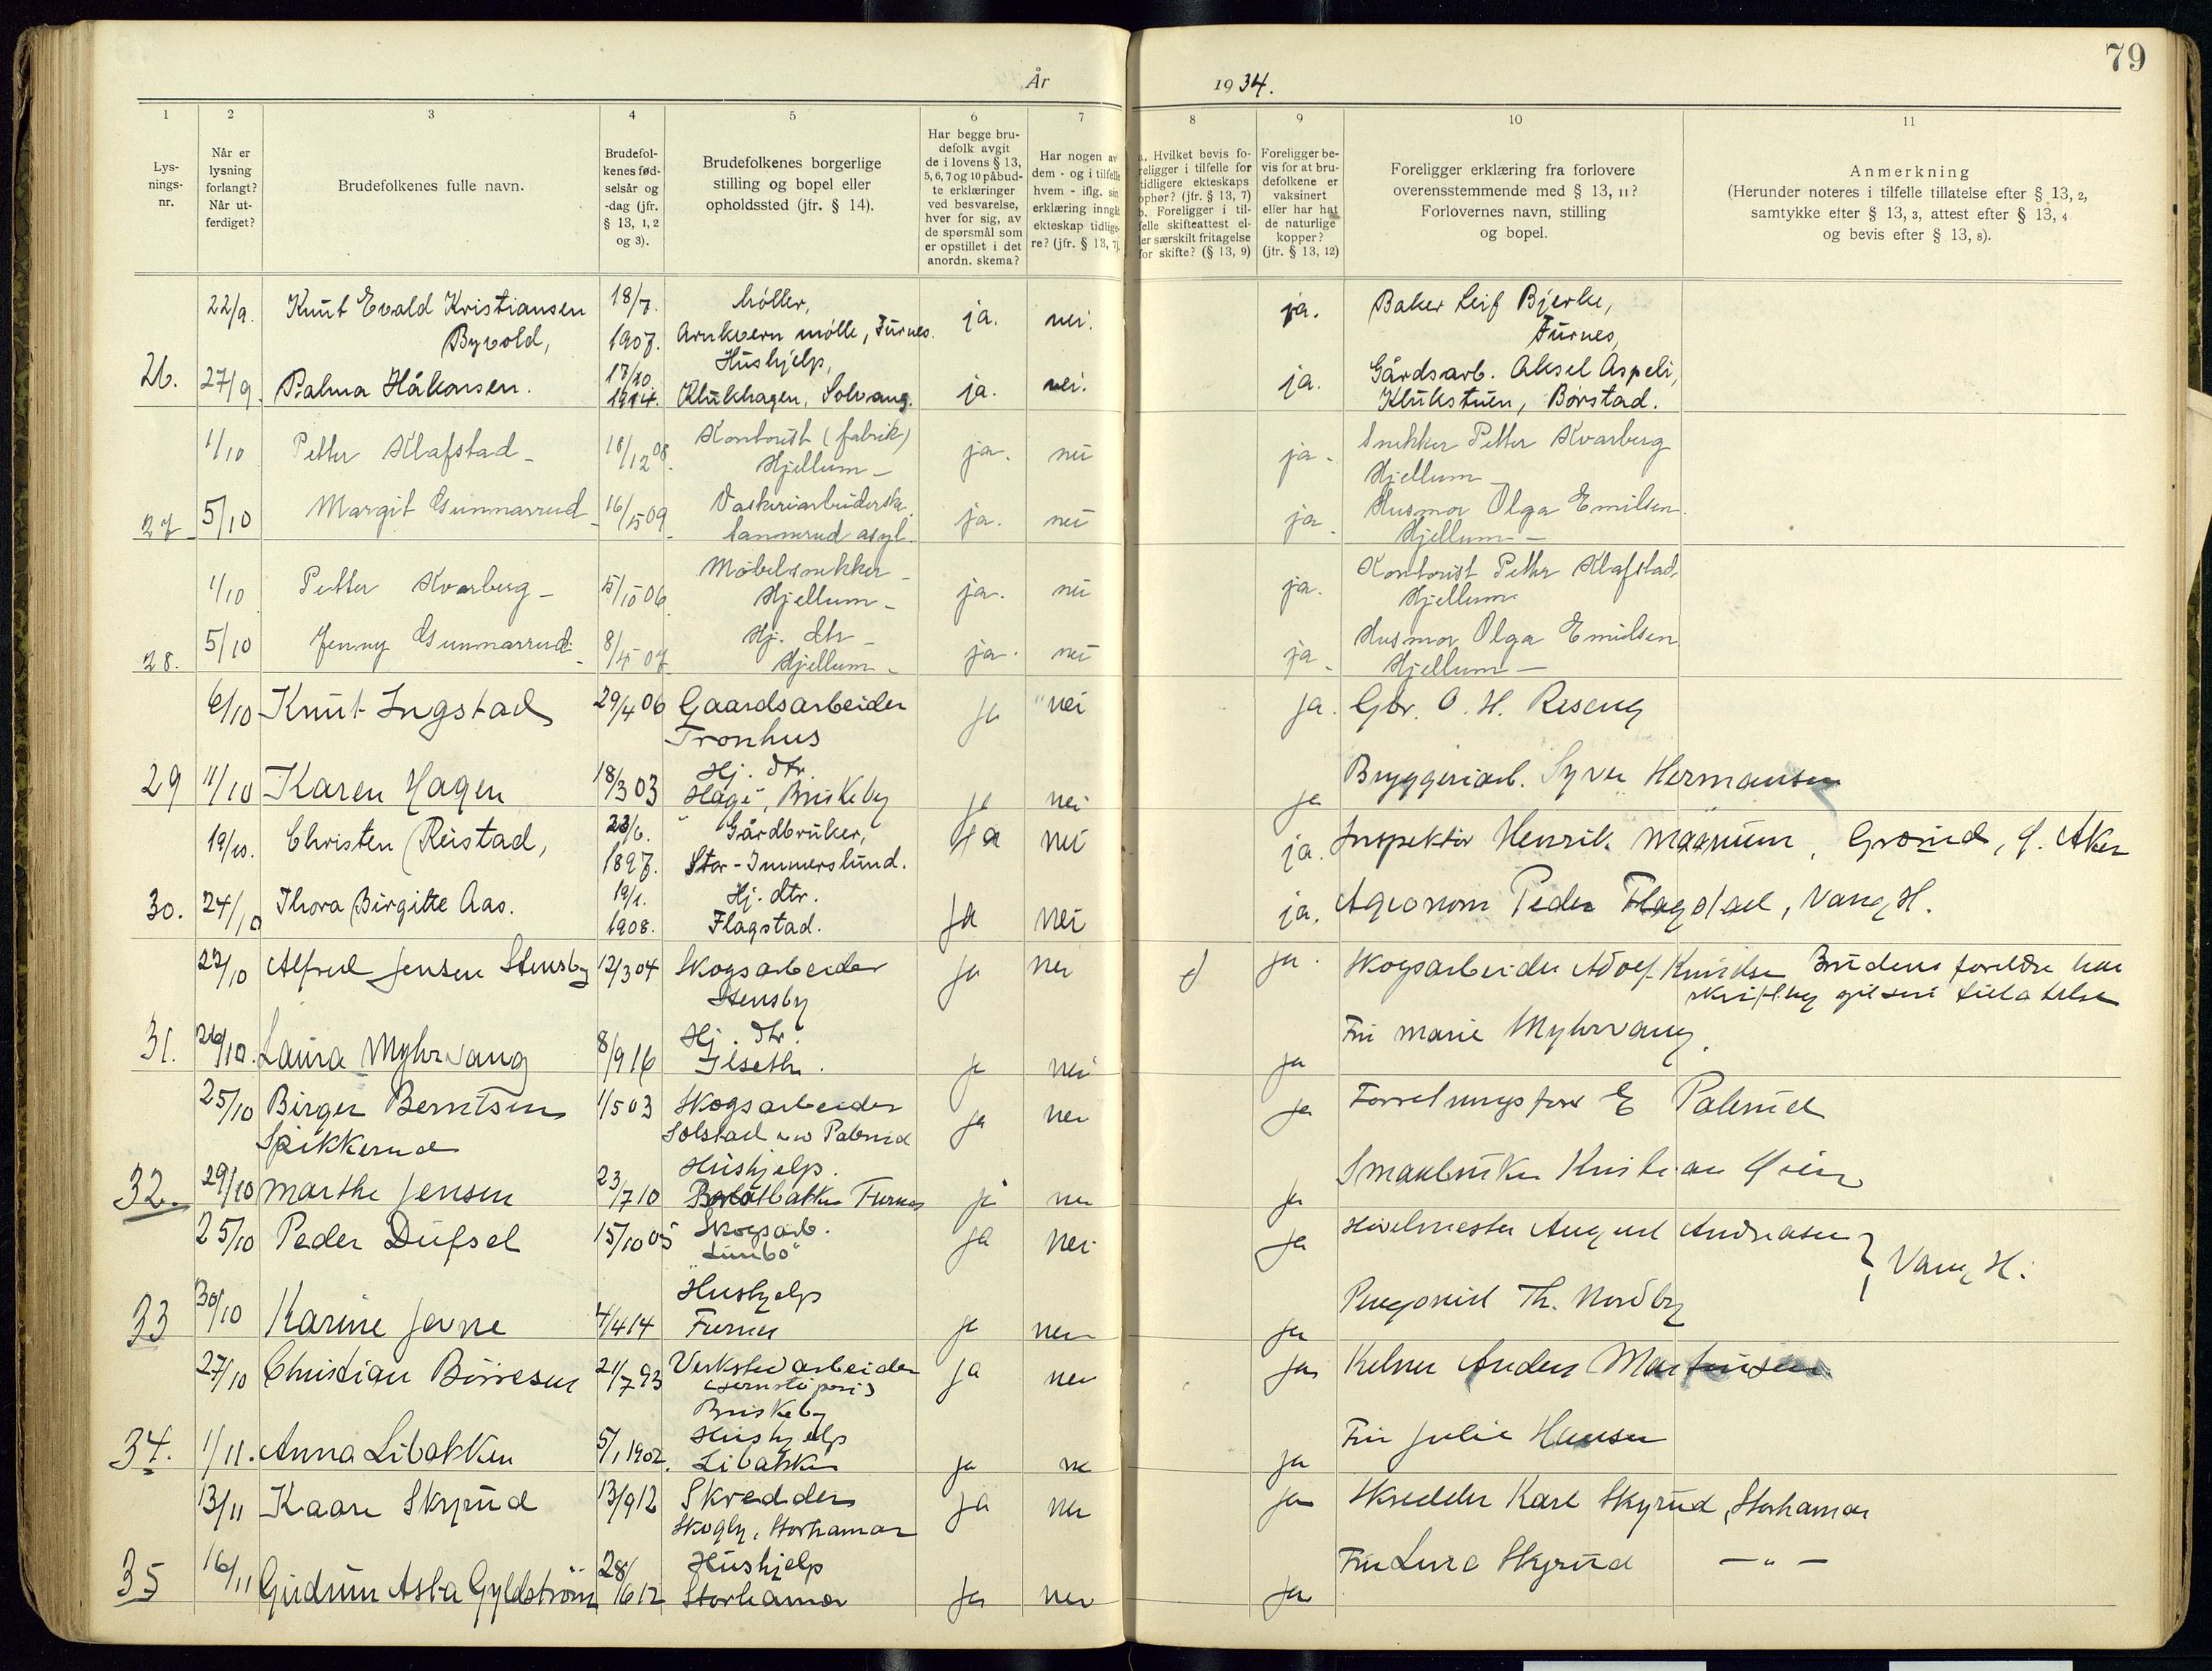 79
År 1934.
1 2 3 4 5 6 7 8 9 10 11
Lysningsnr.
Når er lysning forlangt? Når utferdiget?
Brudefolkenes fulle navn.
Brudefolkenes fødselsår og -dag (jfr. § 13, 1, 2 og 3).
Brudefolkenes borgerlige stilling og bopel eller opholdssted (jfr. § 14).
Har begge brudefolk avgit de i lovens § 13, 5, 6, 7 og 10 påbudte erklæringer ved besvarelse, hver for sig, av de spørsmål som er opstillet i det anordn. skema?
Har nogen av dem - og i tilfelle hvem - iflg. sin erklæring inngått ekteskap tidligere? (jfr. § 13, 7)
a. Hvilket bevis foreligger i tilfelle for tidligere ekteskaps ophør? (jfr. § 13, 7) b. Foreligger i tilfelle skifteattest eller særskilt fritagelse for skifte? (§ 13, 9)
Foreligger bevis for at brudefolkene er vaksinert eller har hat de naturlige kopper? (jfr. § 13, 12)
Foreligger erklæring fra forlovere overensstemmende med § 13, 11? Forlovernes navn, stilling og bopel.
Anmerkning (Herunder noteres i tilfelle tillatelse efter § 13, 2, samtykke efter § 13, 3, attest efter § 13, 4 og bevis efter § 13, 8).
22/9. Knut Evald Kristiansen Byvold, 18/7. 1907. Møller, Arnkvern mølle, Furnes. ja. nei. ja. Baker Leif Bjerke, Furnes,
26. 27/9. Palma Håkonsen. 17/10 1914. Hushjelp, Klukhagen, Solvang. ja. nei. ja. Gårdsarb. Aksel Aspeli, Klukstuen, Børstad.
1/10 Petter Klafstad 18/12 08. Kontorist (fabrik) Hjellum ja. nei ja Snekker Petter Kvarberg Hjellum
27 5/10 Margit Gunnarrud 16/5 09 Vaskeriarbeiderske. Sannerud asyl. ja. nei ja Husmor Olga Emilsen. Hjellum
1/10 Petter Kvarberg 15/10 06 Møbelsnekker Hjellum ja. nei ja. Kontorist Petter Klafstad, Hjellum
28. 5/10 Jenny Gunnarrud 8/5 07 Hj. dtr Hjellum ja. nei ja Husmor Olga Emilsen Hjellum
6/10 Knut Ingstad 29/4 06 Gaardsarbeider Tronhus ja nei ja. Gbr. O. H. Reseng
29 11/10 Karen Hagen 18/3 03 Hj. dtr. "Hage", Briskeby ja nei ja Bryggeriarb. Syver Hermansen
19/10. Christen Reistad, 23/6. 1897. Gårdbruker, Stor-Immerslund. ja nei ja. Inspektør Henrik Magnum, Grorud, Ø. Aker
30. 24/10 Thora Birgitte Aas. 19/1. 1908. Hj. dtr. Flagstad. ja nei ja. Agronom Peder Flagstad, Vang, H.
22/10 Alfred Jensen Stensby 12/3 04 Skogsarbeider Stensby ja nei ja. Skogsarbeider Adolf Knudsen Brudens foreldre har skriftlig gitt sin tillatelse
31. 26/10. Laura Myhrvang 8/9 16 Hj. dtr. Ilseth. ja nei ja Fru Marie Myhrvang.
25/10 Birger Berntsen Spikkerud 1/5 03 Skogsarbeider Solstad ja nei ja Forretningsfører E Palerud
32. 29/10 Marthe Jensen 23/7 10 Hushjelp. Furnes ja nei ja Småbruker Kristian
25/10 Peder Dufsel 15/10 05 Skogsarb. "Limbo" ja nei ja Høvelmester August Andreasen } Vang, H.
33 30/10 Karine Jevne 4/4 14 Hushjelp Furnes ja nei ja Th. Nordby
27/10 Christian Børresen 21/7 93 Verkstedarbeider (Jernstøperi) Briskeby ja nei ja Kelner Anders Martinsen.
34. 1/11. Anna Libakken 5/1 1902. Hushjelp Libakken ja nei ja Fru Julie Hansen
13/11 Kaare Skyrud 13/9 12 Skredder Skogly, Storhamar ja nei ja Skredder Karl Skyrud, Storhamar
35 16/11 Gudrun Asta Gyldstrøm 28/6 12 Hushjelp Storhamar ja nei ja Fru Skyrud — " —